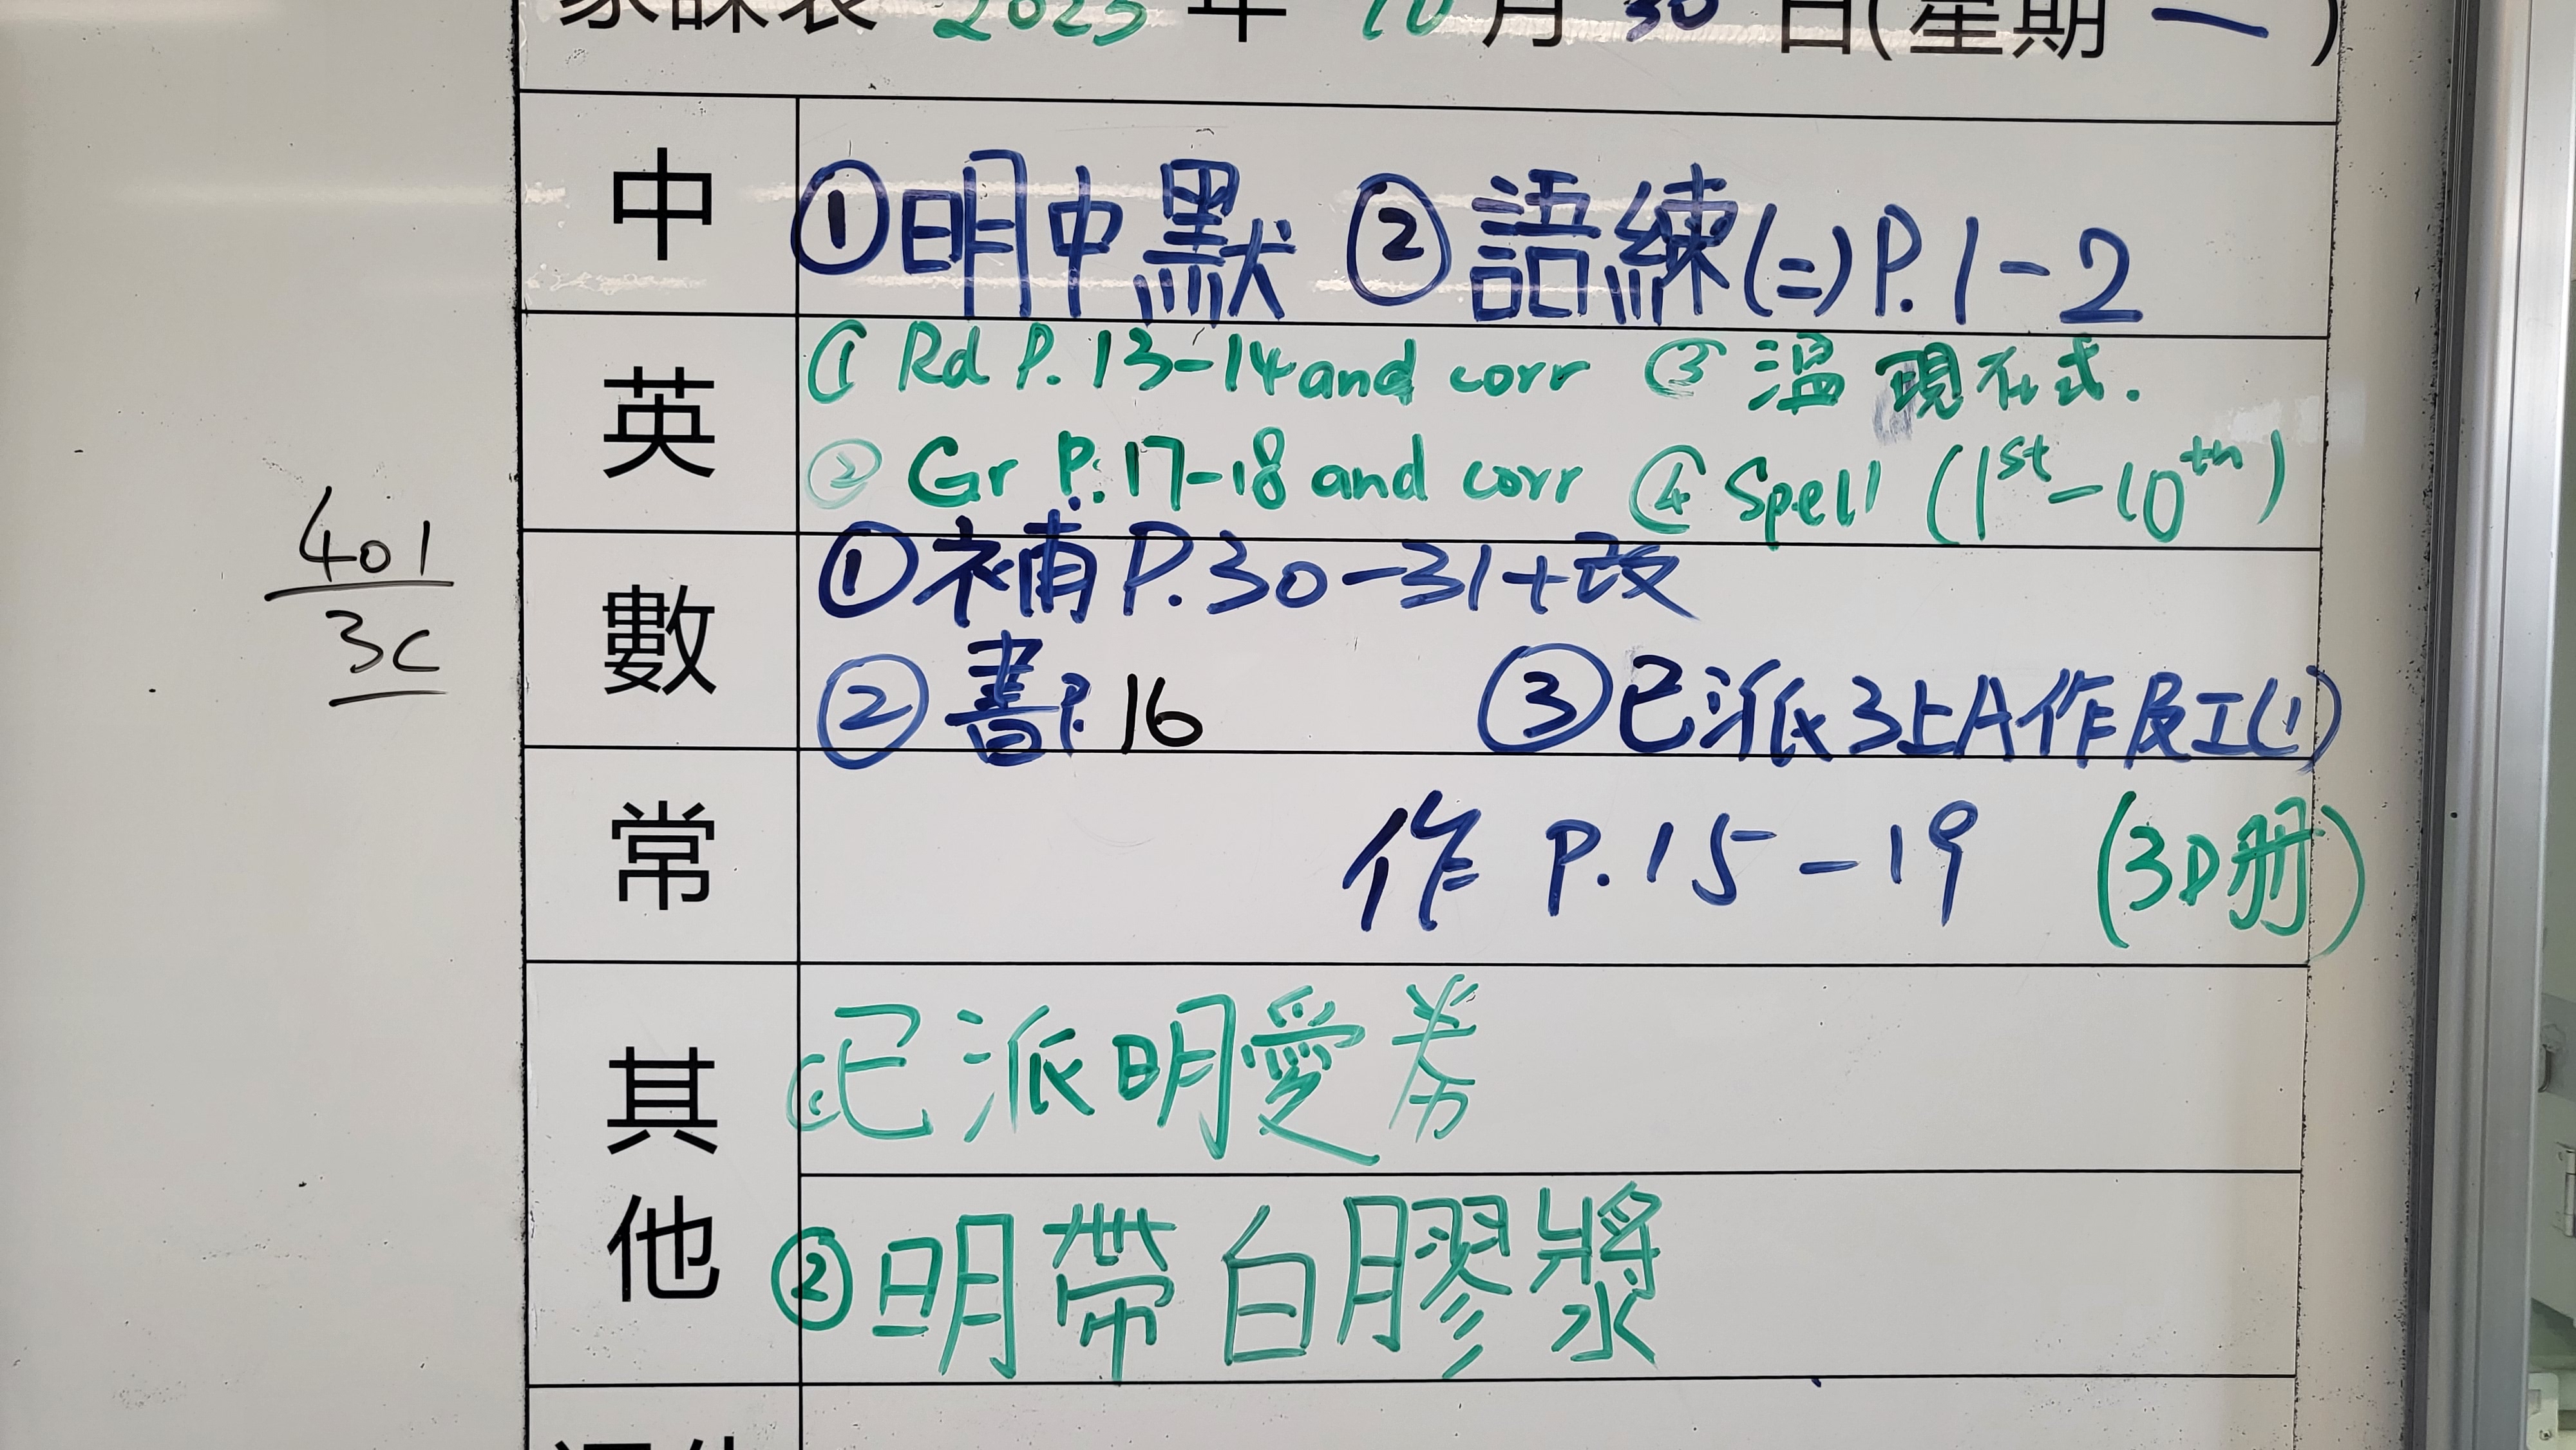 家課表 2023 年 10 月 30 日(星期 一 )
中 ①明中默 ②語練(二)P.1-2
英 ① Rd P.13-14 and corr ③ 溫現在式.
② Gr P.17-18 and corr ④ Spell (1st-10th)
401
3C
數 ①補P.30-31+改
②書P.16 ③已派3上A作及工(1)
常 作 P.15-19 (3D册)
其他 ①已派明愛券
②明帶白膠漿